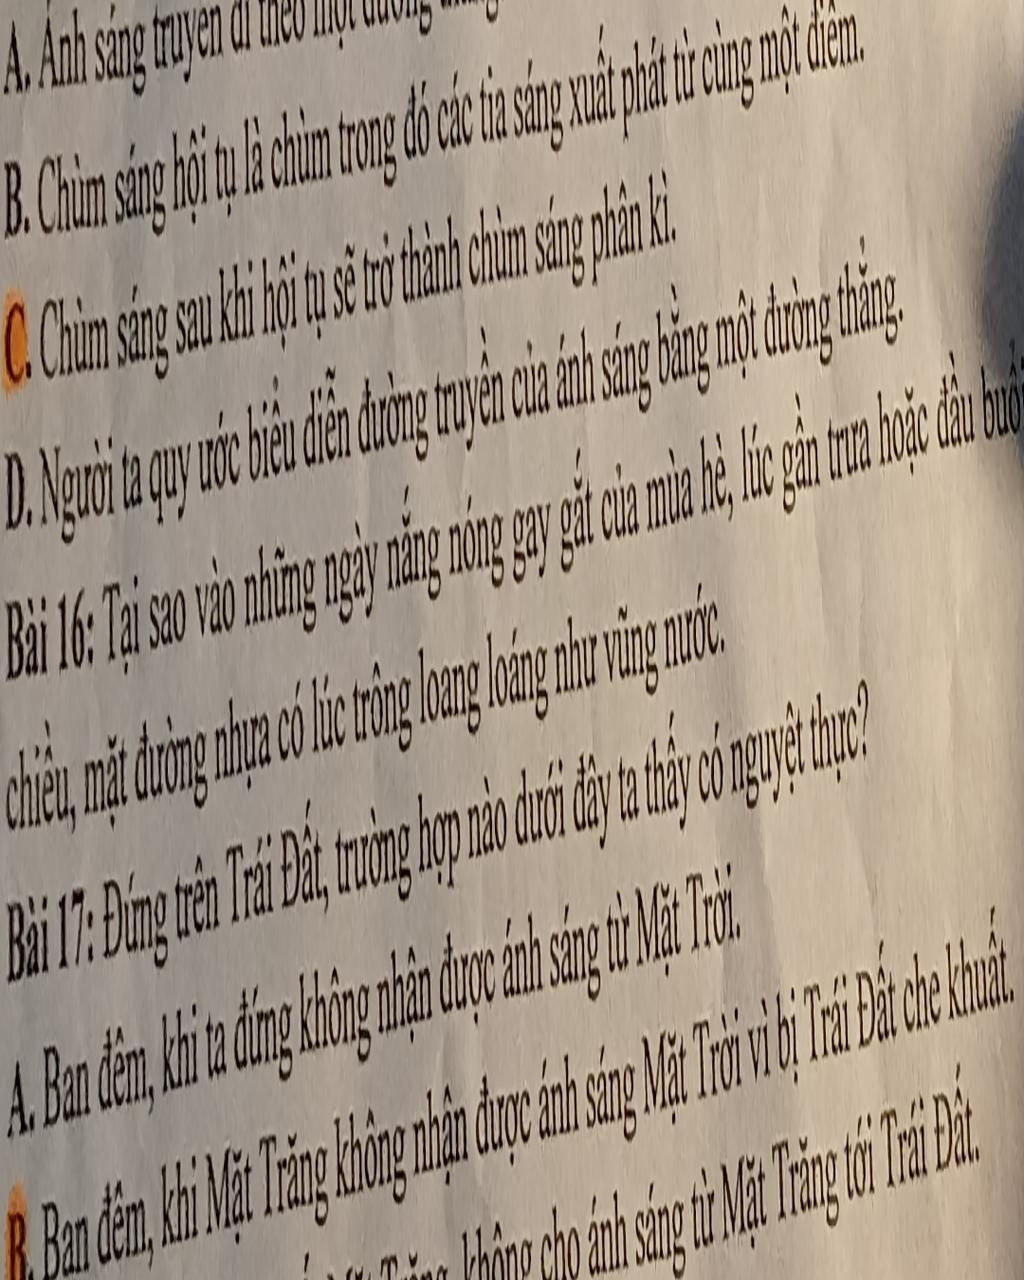 A. Ánh sáng truyền đi theo một đường
B. Chùm sáng hội tụ là chùm trong đó các tia sáng xuất phát từ cùng một điểm.
C. Chùm sáng sau khi hội tụ sẽ trở thành chùm sáng phân kì.
D. Người ta quy ước biểu diễn đường truyền của ánh sáng bằng một đường thẳng.
Bài 16: Tại sao vào những ngày nắng nóng gay gắt của mùa hè, lúc gần trưa hoặc đầu buổi
chiều, mặt đường nhựa có lúc trông loang loáng như vũng nước.
Bài 17: Đứng trên Trái Đất, trường hợp nào dưới đây ta thấy có nguyệt thực?
A. Ban đêm, khi ta đứng không nhận được ánh sáng từ Mặt Trời.
B. Ban đêm, khi Mặt Trăng không nhận được ánh sáng Mặt Trời vì bị Trái Đất che khuất.
Trăng không cho ánh sáng từ Mặt Trăng tới Trái Đất.